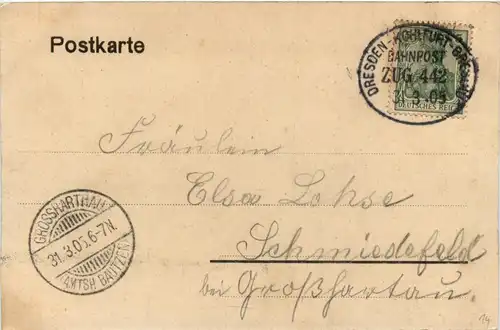 Postkarte
DRESDEN-KOHLFURT-BRESLAU
BAHNPOST
ZUG 442
31 3 05
DEUTSCHES REICH
Fräulein
Elsa Lohse
Schmiedefeld
bei Großhartau.
GROSSHARTHAU
31.3.05.6-7N.
(AMTSH. BAUTZEN)
14